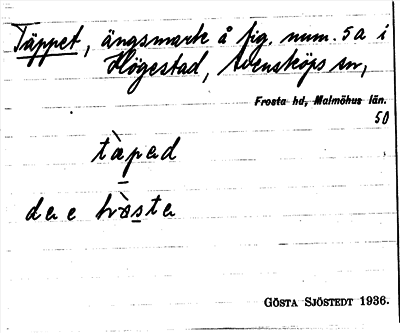 Täppet, ängsmark å fig. num. 5a i
Högestad, Svensköps sn,
Frosta hd, Malmöhus län.
50
tæpad
de e bræsta
GÖSTA SJÖSTEDT 1936.